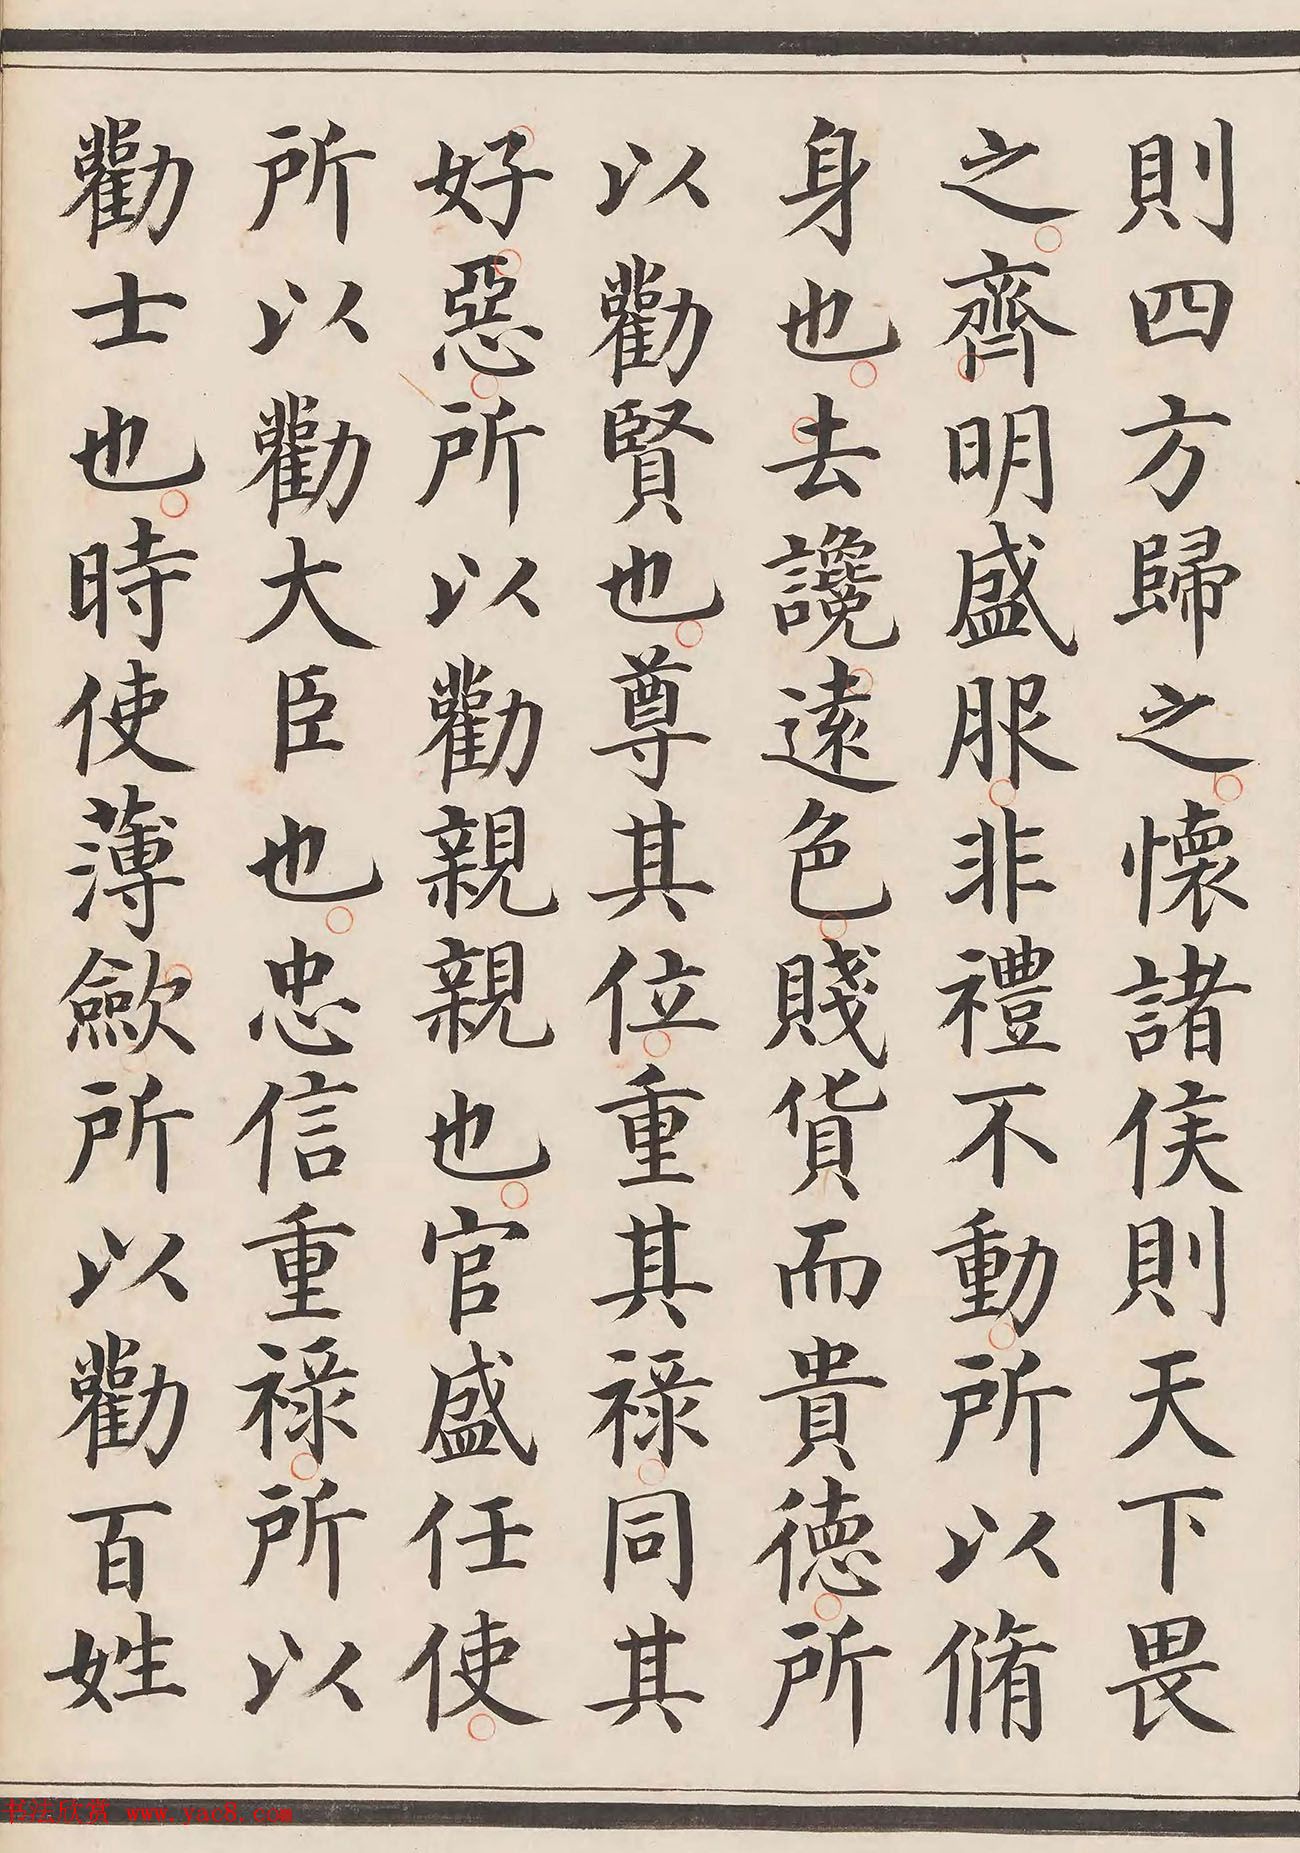 則四方歸之懷諸侯則天下畏
之齊明盛服非禮不動所以脩
身也去讒遠色賤貨而貴德所
以勸賢也尊其位重其祿同其
好惡所以勸親親也官盛任使
所以勸大臣也忠信重祿所以
勸士也時使薄斂所以勸百姓
书法欣赏 www.yac8.com